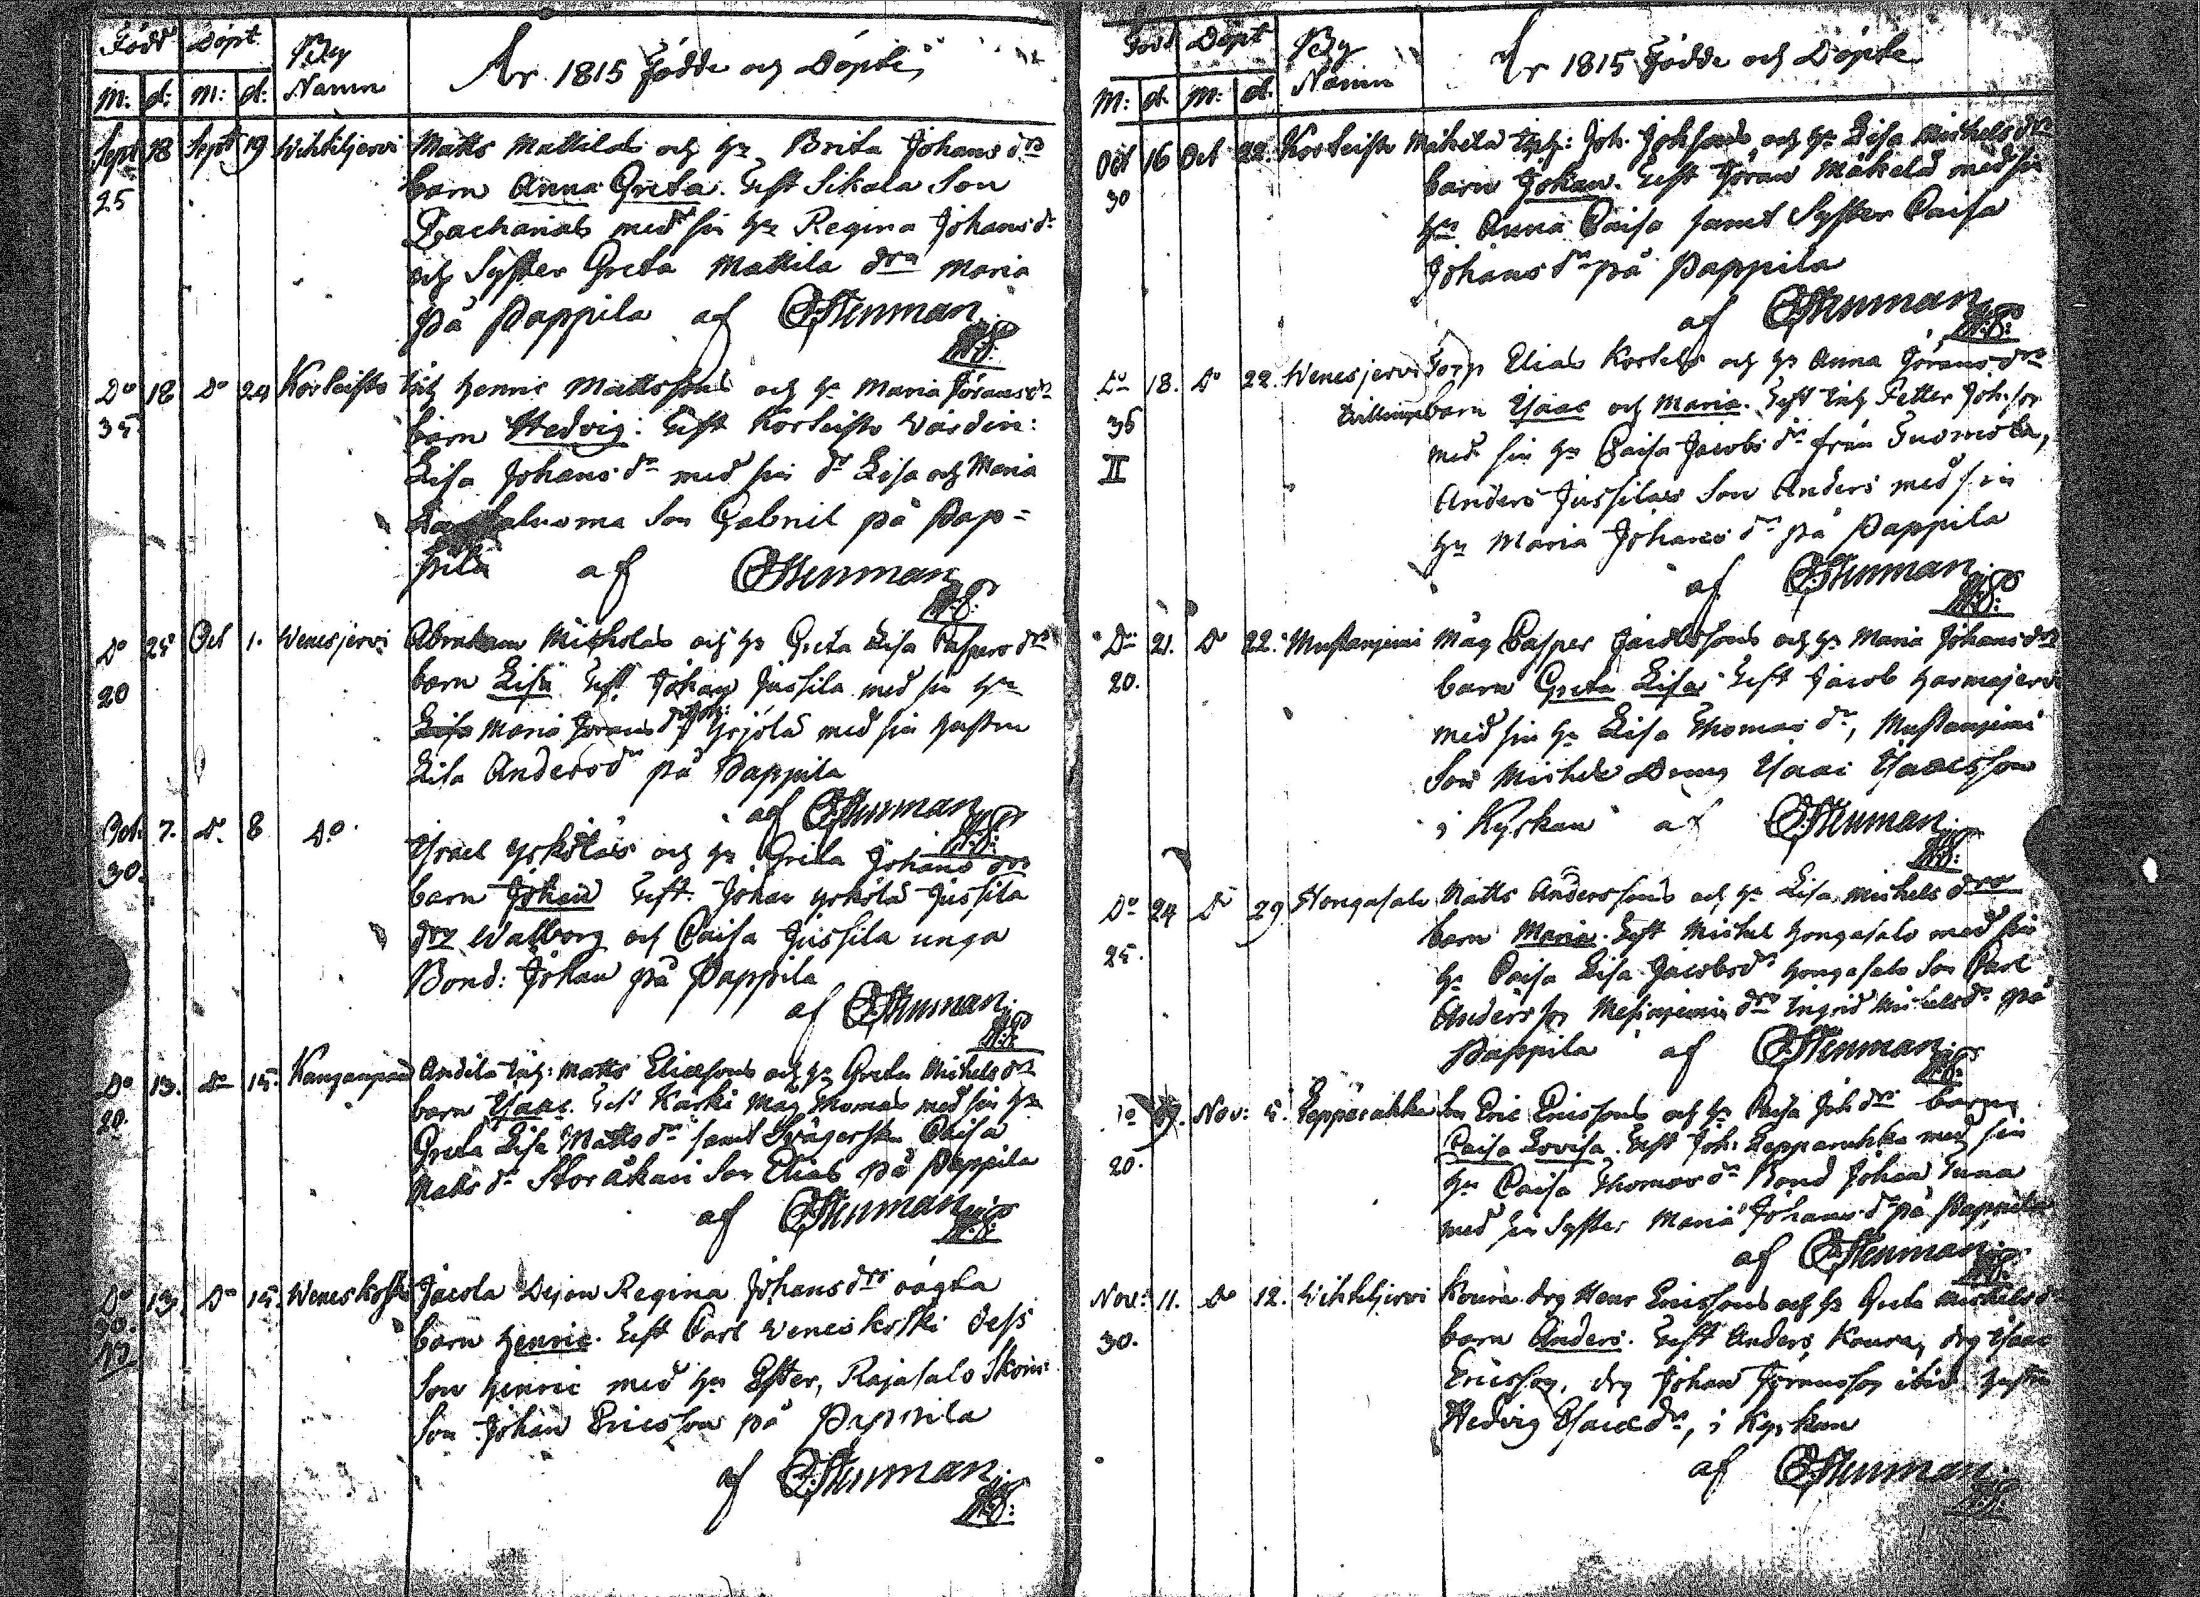 Född Döpt By Namn
År 1815 Födde och Döpte
M: d: M: d:
Sept 18 Sept 19 Wihtiljervi Matts Mattilas och h. Brita Johans dr
25 barn Anna Greta. Test Sikala Son
Zacharias med sin h. Regina Johans d.
och Syster Greta Mattila dra Maria
på Pappila af Stenman
Do 18 Do 24 Korteisto Inh Henric Mattssons och h. Maria Jörans dr
35 barn Hedvig. Test Korteisto Värdin:
Lisa Johans dr med sin dr Lisa och Maria
Son Gabriel på Pap=
pila af Stenman
Do 25 Oct 1. Wenesjervi Abraham Michelss och h. Greta Lisa Caspers dr
20 barn Lisa Test. Johan Jussila med sin h.
Lisa Maria Jörans dr Yrjölä med sin hustru
Lisa Anders dr på Pappila
af Stenman
Oct. 7. Do. 8 Do Israel Yrkölas och h. Greta Johans dr
30. barn Johan Test. Johan Yrkölä Jussila
dr Walborg och Caisa Jussila unga
Bond: Johan på Pappila
af Stenman
Do 13. Do 15. Kanganpää Andila Inh: Matts Eliassons och h. Greta Michels dr
20. barn Isaac. Test Karki Måg Thomas med sin h.
Greta Lisa Matts dr samt Svägerskan Caisa
Matts dr Storåkari Son Elias på Pappila
af Stenman
Do 13. Do 15. Weneskoski Jacola Pigan Regina Johans drs oägta
30. barn Henric. Test Carl Weneskoski dess
Son Henric med h. Ester, Rajasalo Skom:
Son Johan Ericsson på Pappila
af Stenman
Född Döpt By Namn
År 1815 Födde och Döpte
M: d. M: d.
Oct 16 Oct 22. Korteisto Mäkelä Inh: Joh. Johssons och h. Lisa Michels dr
30 barn Johan. Test Jöran Mäkelä med sin
h. Anna Caisa samt Syster Caisa
Johans dr på Pappila
af Stenman
Do 18. Do 22. Wenesjervi Torp Elias Kortels och h. Anna Jörans dr
36 tvillingebarn Isaac och Maria. Test Inh Petter Johsson
II med sin h. Caisa Jacobs dr från Tuomola,
Anders Jussilas Son Anders med sin
h. Maria Johans dr på Pappila
af Stenman
Do 21. Do 22. Mustanjemi Måg Casper Jacobssons och h. Maria Johans dr
20. barn Greta Lisa Test Jacob Harmajervi
med sin h. Lisa Thomas dr, Mustanjemi
Son Michel Dreng Isaac Isaacsson
i Kyrkan af Stenman
Do 24 Do 29 Hongasalo Matts Anderssons och h. Lisa Michels dr
25. barn Maria. Test Michel Hongasalo med sin
h. Caisa Lisa Jacobs dr Hongasalo Son Carl
Andersson dr Ingrid Michels dr på
Pappila af Stenman
Do 29. Nov: 5. Leppärahka Eric Ericssons och h. Caisa Joh dr barn
20. Caisa Lovisa. Test Joh: Lepparahka med sin
h. Caisa Thomas dr Bond Johan Tuna
med sin Syster Maria Johans dr på Pappila
af Stenman
Nov: 11. Do 12. Wihtiljervi Koura drg Henr Ericssons och h. Greta Michels dr
30. barn Anders. Test Anders Koura, drg Isaac
Ericsson, drg Johan Jöransson ibid hustru
Hedvig Isacs dr, i Kyrkan
af Stenman